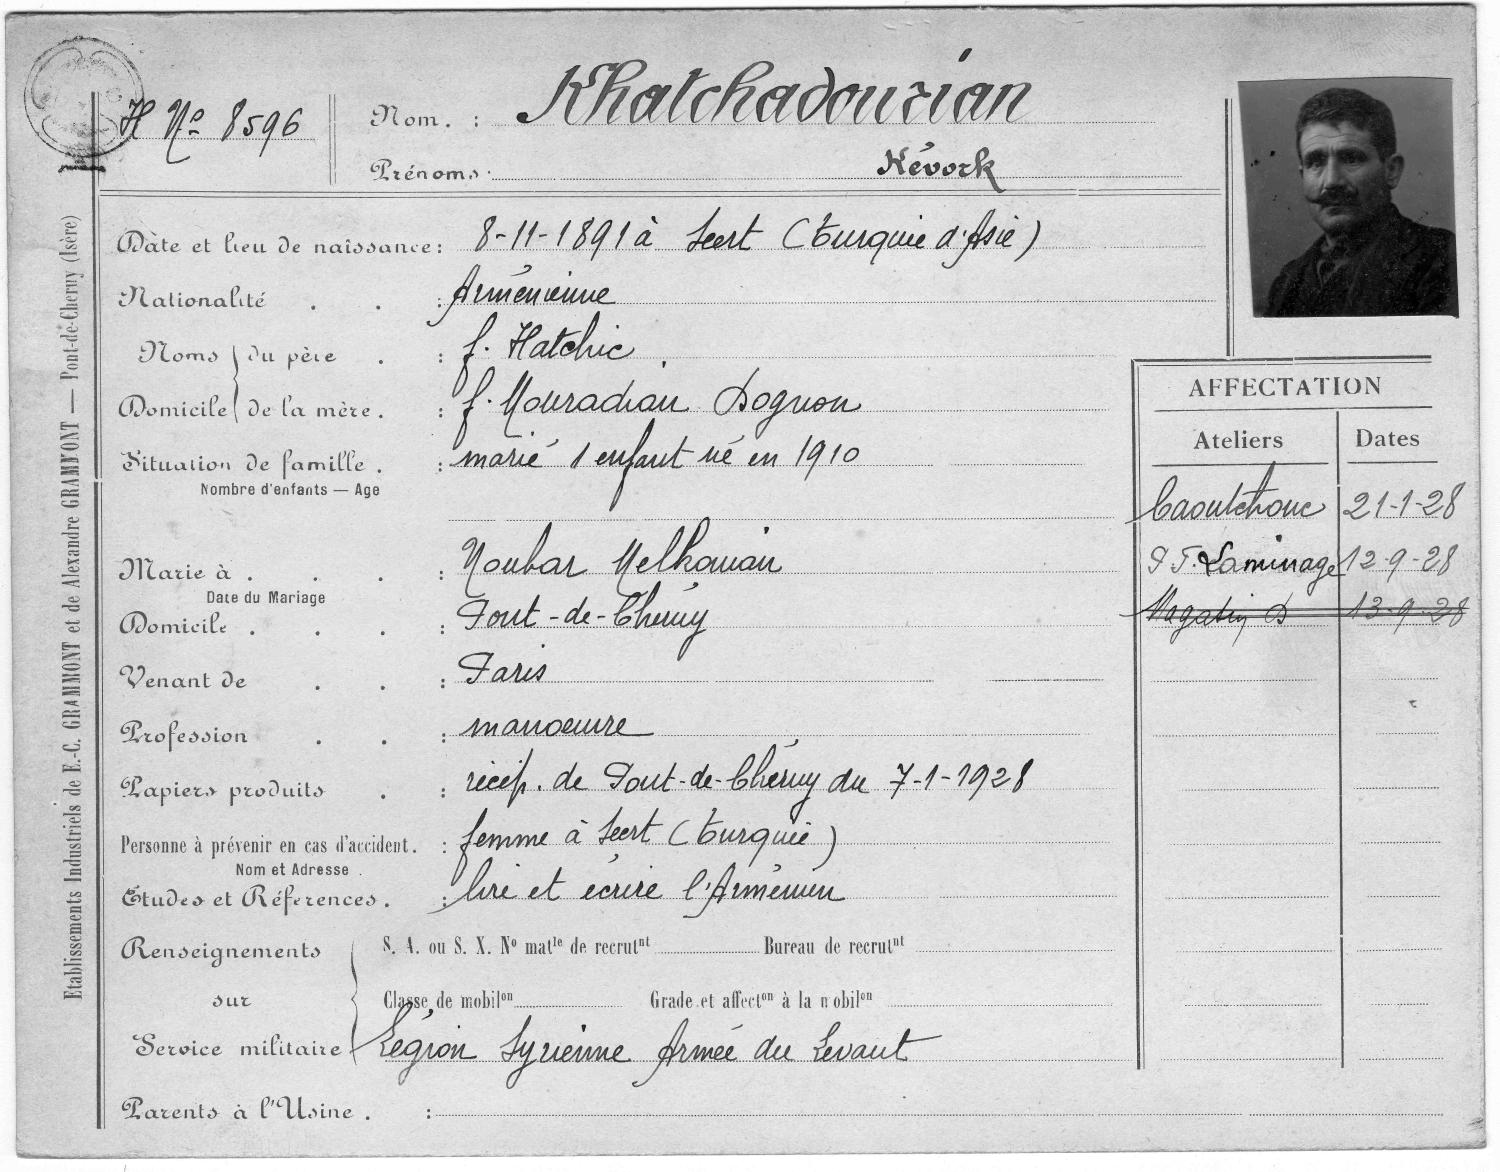 H No 8596
Nom. : Khatchadourian
Prénoms. Kévork
Dâte et lieu de naissance: 8-11-1891 à Seert (Turquie d'Asie)
Nationalité . . : Arménienne
Noms du père . : f. Hatchic
Domicile de la mère. : f. Mouradian Dognon
Situation de famille . : marié 1 enfant né en 1910
Nombre d'enfants — Age
Marié à . . . : Noubar Melkonian
Date du Mariage
Domicile . . . : Pont-de-Chéruy
Venant de . . : Paris
Profession . . : manoeuvre
Papiers produits . : récép. de Pont-de-Chéruy du 7-1-1928
Personne à prévenir en cas d'accident. : femme à Seert (Turquie)
Nom et Adresse .
Etudes et Références. : lire et écrire l'Arménien
Renseignements sur Service militaire
S. A. ou S. X. No matle de recrutnt Bureau de recrutnt
Classe de mobilon Grade et affecton à la mobilon
Légion Syrienne Armée du Levant
Parents à l'Usine . :
AFFECTATION
Ateliers Dates
Caoutchouc 21-1-28
P.T. Laminage 12-9-28
Magasin D 13-9-28
Etablissements Industriels de E.-C. GRAMMONT et de Alexandre GRAMMONT — Pont-de-Cheruy (Isère)